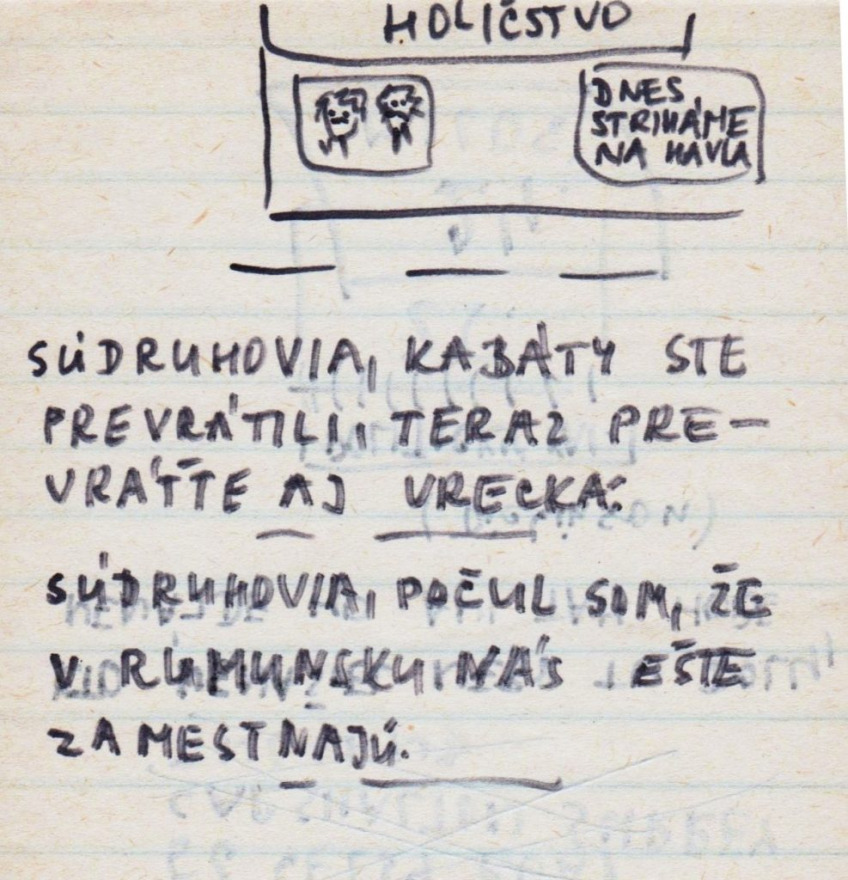 HOLIČSTVO
DNES
STRIHÁME
NA HAVLA
SÚDRUHOVIA, KABÁTY STE
PREVRÁTILI, TERAZ PRE-
VRÁŤTE AJ VRECKÁ.
SÚDRUHOVIA, POČUL SOM, ŽE
V RUMUNSKU NÁS EŠTE
ZAMESTNAJÚ.